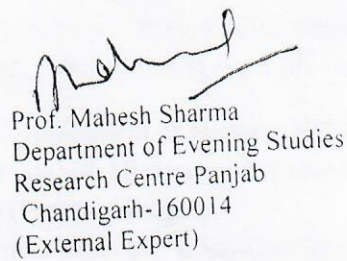 Prof. Mahesh Sharma
Department of Evening Studies
Research Centre Panjab
Chandigarh-160014
(External Expert)